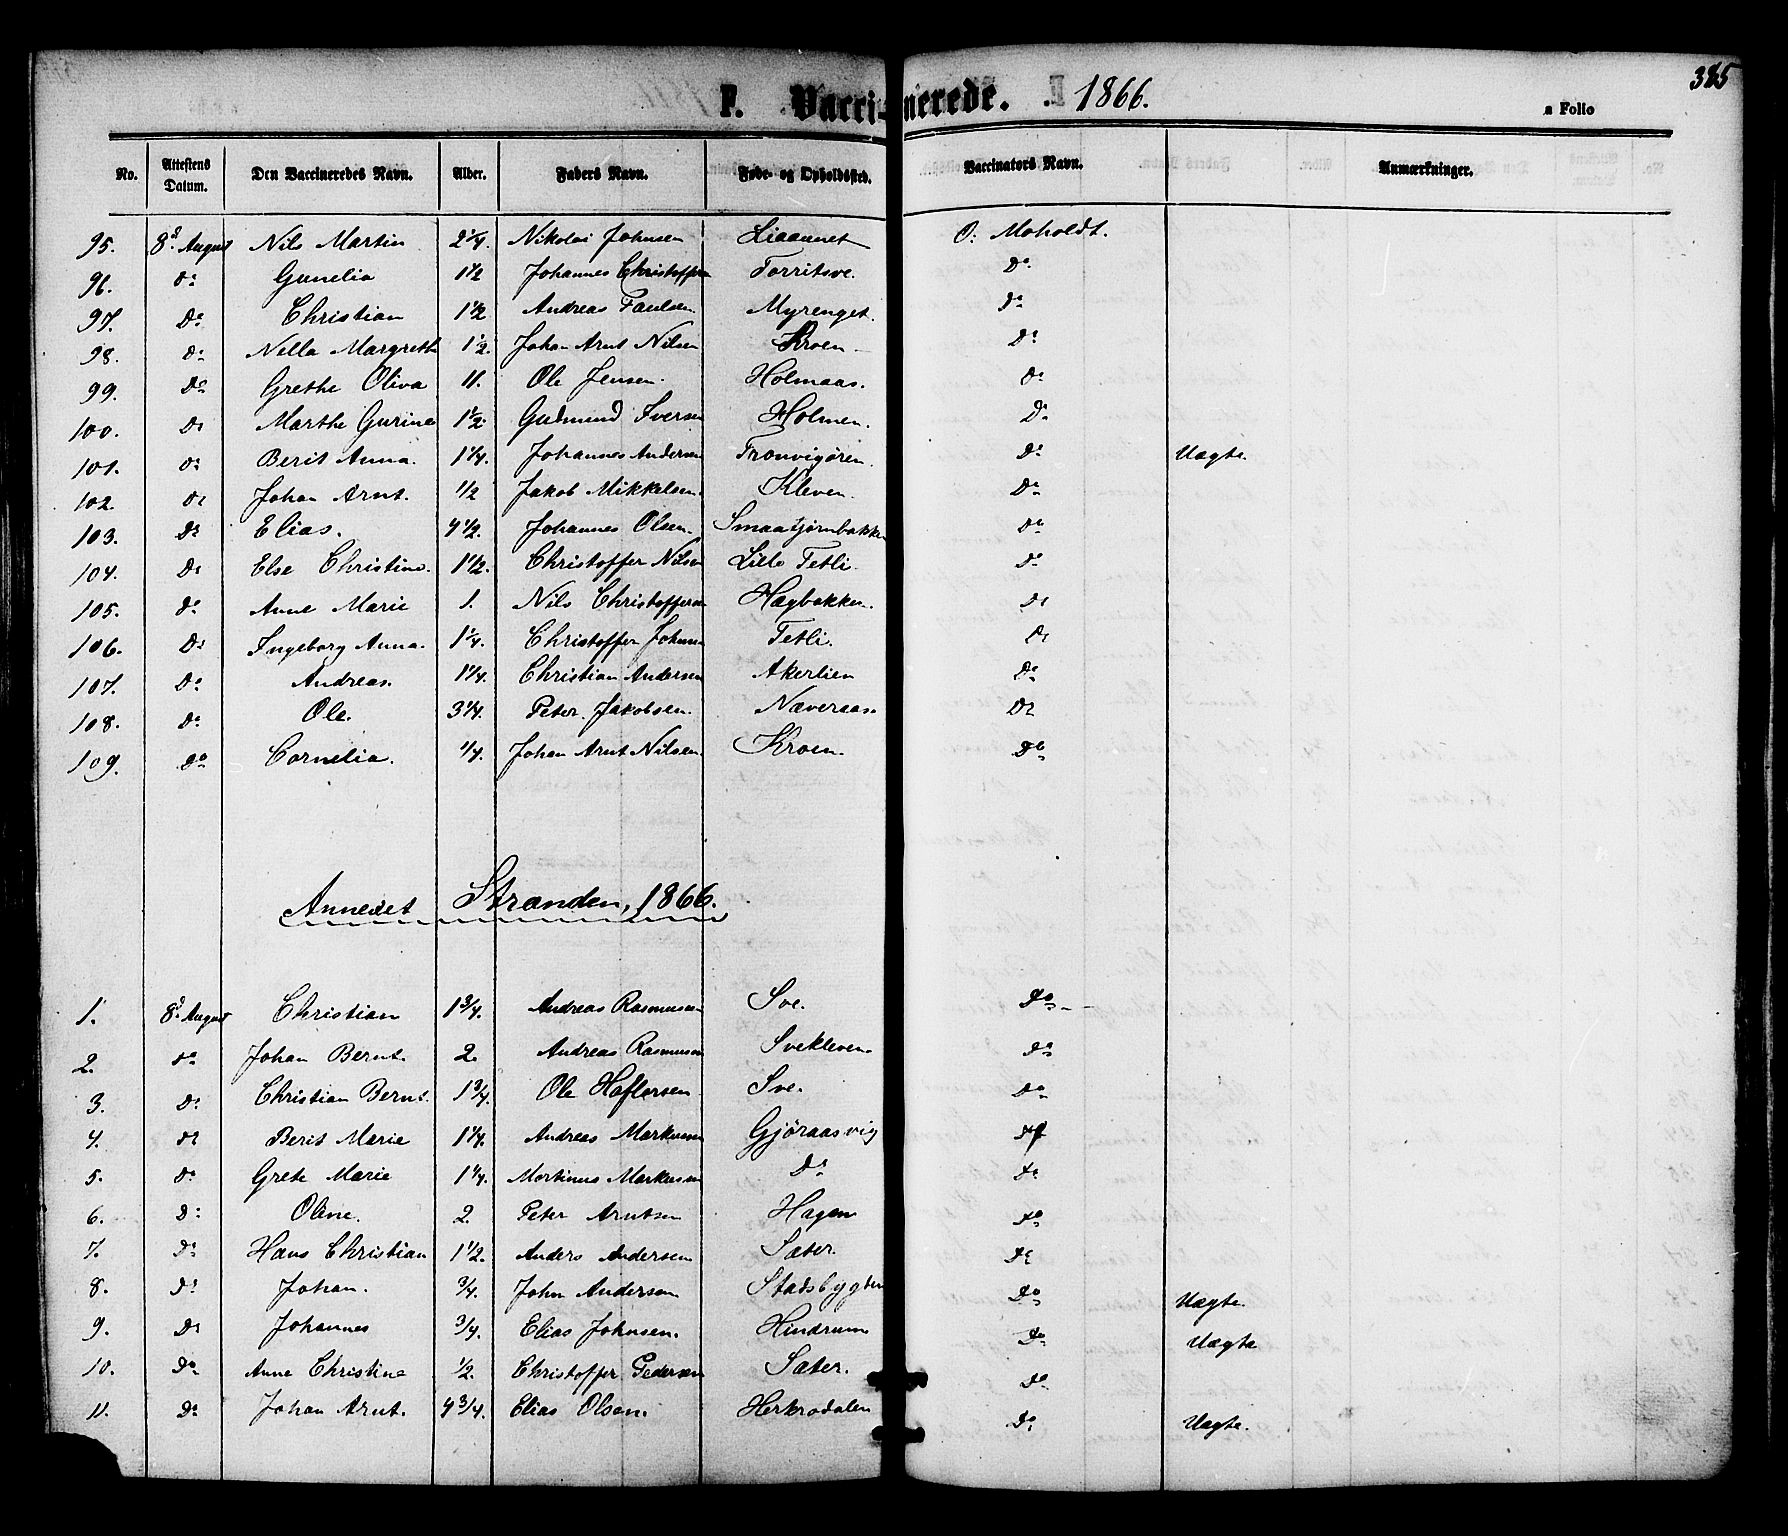 385
F. Vaccinerede. 1866.
a Folio
No. Attestens Datum. Den Vaccineredes Navn. Alder. Faders Navn. Føde- og Opholdssted. Vaccinators Navn. Anmærkninger.
95. 8d August Nils Martin 2 1/4. Nikolai Johnsen Liaaunet O: Moholdt.
96. do Gunelia 1 1/2 Johannes Christoffersen Torritsve. Do
97. Do Christian 1 1/2 Andreas Paulsen Myrenget. Do
98. Do Nella Margreth 1 1/2. Johan Arnt Nilsen Kroen Do
99. Do Grethe Oliva 11. Ole Jensen. Holmaas. Do
100. Do Marthe Gurine 1 1/2. Gudmund Iversen Holmen. Do
101. Do Berit Anna. 1 1/4. Johannes Andersen Tronvigøren. Do Uægte.
102. Do Johan Arnt. 1/2 Jakob Mikkelsen. Kleven. Do
103. Do Elias. 4 1/2. Johannes Olsen. Smaatjørnbakken Do
104. Do Else Christine. 1 1/2. Christoffer Nilsen Lille Tetli. Do
105. do Anne Marie 1. Nils Christoffersen Hægbakken. Do
106. Do Ingeborg Anna. 1 1/4. Christoffer Johnsen Tetli. Do
107. Do Andreas. 1 1/4. Christian Andersen Akerlien Do
108. Do Ole. 3 1/4. Peter Jakobsen. Næveraas Do
109. Do Cornelia. 1/4. Johan Arnt Nilsen. Kroen. Do
Annexet Stranden, 1866.
1. 8d August Christian 1 3/4. Andreas Rasmussen Sve. Do
2. do Johan Bernt. 2. Andreas Rasmussen Svekleven Do
3. Do Christian Bernt. 1 3/4. Ole Haflorsen Sve. Do
4. do Berit Marie 1 1/4. Andreas Markussen Gjøraasvig Do
5. do Grete Marie 1 1/4. Martinus Markussen Do Do
6. D: Oline. 2. Peter Arntsen Hagen Do
7. Do Hans Christian 1 1/2. Anders Andersen Sæter. Do
8. Do Johan. 3/4. John Andersen Stadsbygden Do Uægte.
9. Do Johannes 3/4. Elias Johnsen. Hindrum Do Uægte
10. Do Anne Christine 1/2. Christoffer Pedersen Sæter. Do
11. Do Johan Arnt. 4 3/4. Elias Olsen. Herkrodalen Do Uægte.